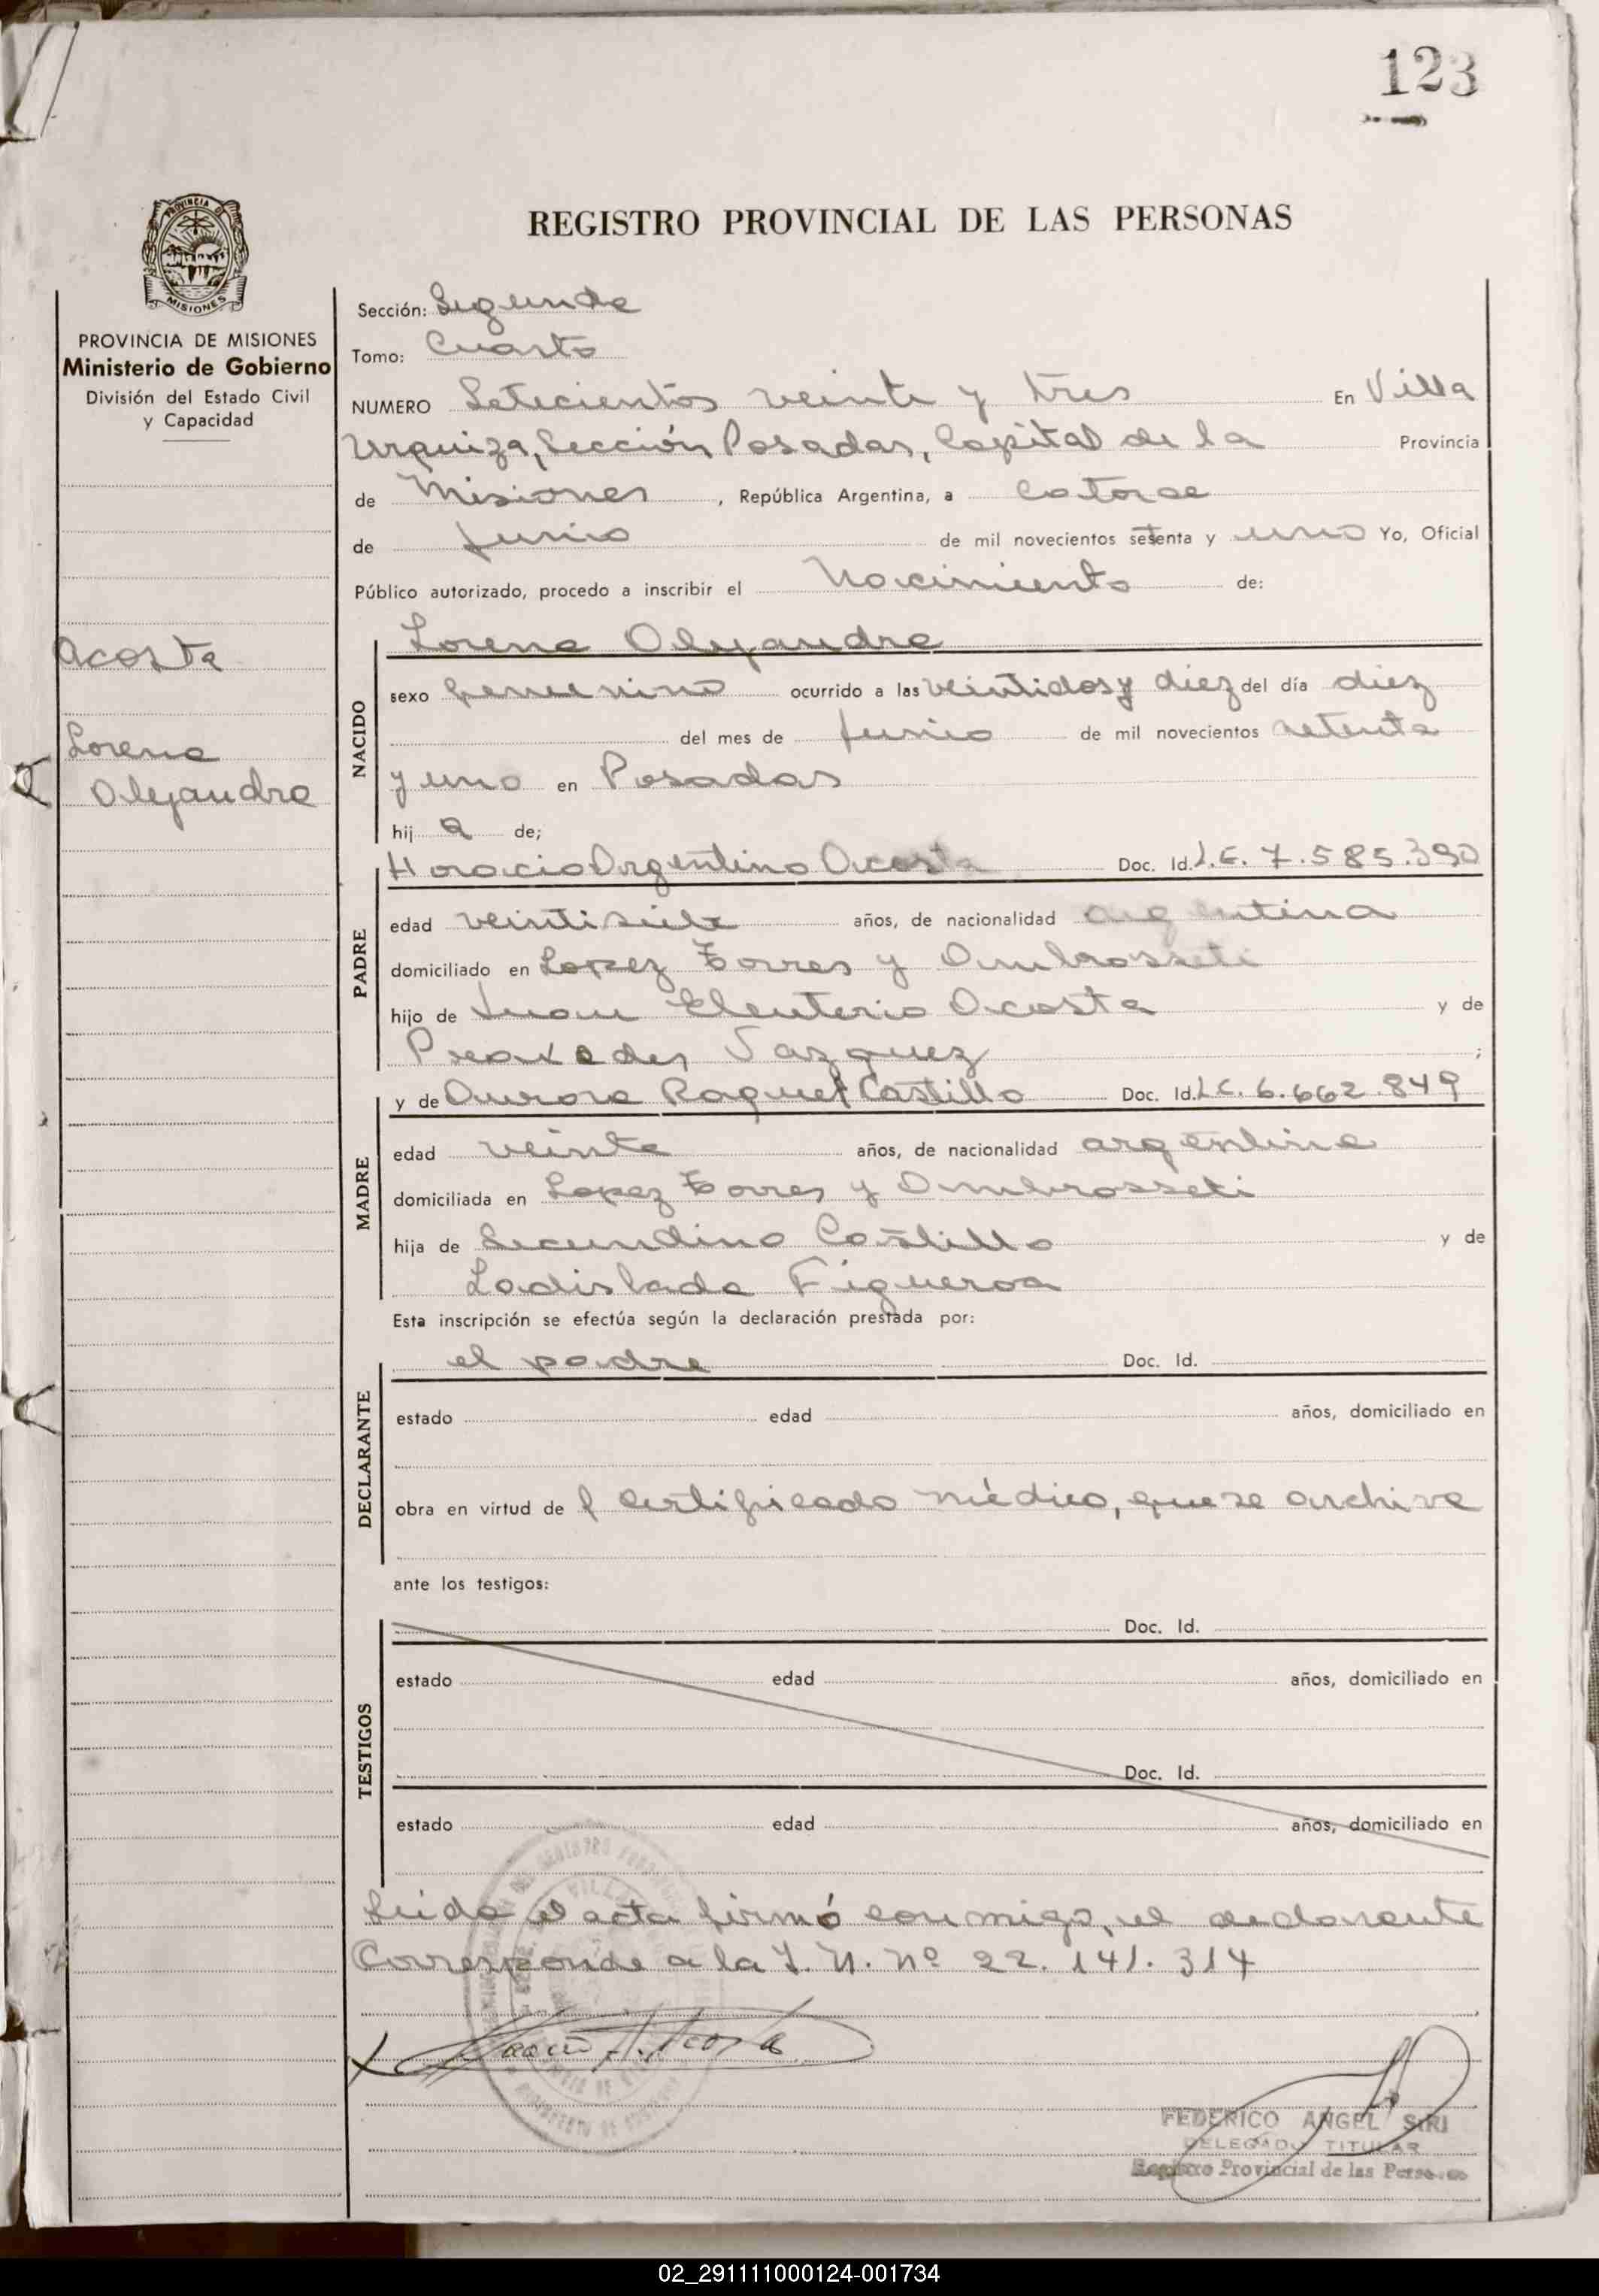 123
REGISTRO PROVINCIAL DE LAS PERSONAS
PROVINCIA DE
MISIONES
PROVINCIA DE MISIONES
Ministerio de Gobierno
División del Estado Civil
y Capacidad
Acosta
Lorena
Alejandra
Sección: Segunda
Tomo: Cuarto
NUMERO Setecientos veinte y tres En Villa
Urquiza, Sección Posadas, Capital de la Provincia
de Misiones, República Argentina, a Catorce
de Junio de mil novecientos setenta y uno Yo, Oficial
Público autorizado, procedo a inscribir el Nacimiento de:
NACIDO
Lorena Alejandra
sexo femenino ocurrido a las veintidos y diez del día diez
del mes de Junio de mil novecientos setenta
y uno en Posadas
hij a de;
PADRE
Horacio Argentino Acosta Doc. Id. L.E. 7.585.390
edad veintisiete años, de nacionalidad argentina
domiciliado en Lopez Torres y Ambrosseti
hijo de Juan Eleuterio Acosta y de
Praxedes Vazquez ;
MADRE
y de Aurora Raquel Castillo Doc. Id. L.C. 6.662.849
edad veinte años, de nacionalidad argentina
domiciliada en Lopez Torres y Ambrosseti
hija de Secundino Castillo y de
Ladislada Figueroa
Esta inscripción se efectúa según la declaración prestada por:
DECLARANTE
el padre Doc. Id.
estado edad años, domiciliado en
obra en virtud de l certificado médico, que se archiva
ante los testigos:
TESTIGOS
Doc. Id.
estado edad años, domiciliado en
Doc. Id.
estado edad años, domiciliado en
Leida el acta firmó conmigo, el declarante
Corresponde a la I. N. Nº 22.141.314
Horacio A. Acosta
FEDERICO ANGEL SIRI
DELEGADO TITULAR
Registro Provincial de las Personas
02_291111000124-001734